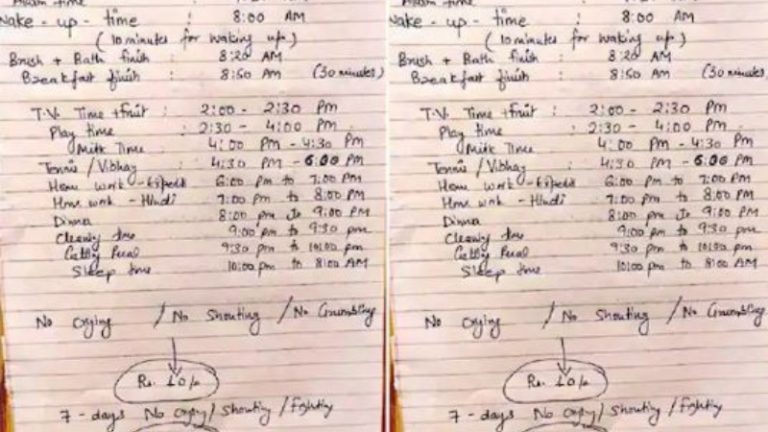 Wake - up - time : 8:00 AM
(10 minutes for waking up)
Brush + Bath finish : 8:20 AM
Breakfast finish : 8:50 AM (30 minutes)
T.V. Time + fruit : 2:00 - 2:30 Pm
Play time : 2:30 - 4:00 Pm
Milk Time : 4:00 Pm - 4:30 Pm
Tennis / Vibhay : 4:30 Pm - 6:00 Pm
Home work - 6:00 Pm to 7:00 Pm
Home work - Hindi 7:00 Pm to 8:00 PM
Dinner 8:00 pm to 9:00 PM
Cleaning time 9:00 pm to 9:30 pm
9:30 pm to 10:00 pm
Sleep time 10:00 pm to 8:00 AM
No Crying / No Shouting / No Grumbling
Rs. 10/-
7 - days No Crying / Shouting / fighting
Wake - up - time : 8:00 AM
(10 minutes for waking up)
Brush + Bath finish : 8:20 AM
Breakfast finish : 8:50 AM (30 minutes)
T.V. Time + fruit : 2:00 - 2:30 Pm
Play time : 2:30 - 4:00 Pm
Milk Time : 4:00 Pm - 4:30 Pm
Tennis / Vibhay : 4:30 Pm - 6:00 Pm
Home work - 6:00 Pm to 7:00 Pm
Home work - Hindi 7:00 Pm to 8:00 PM
Dinner 8:00 pm to 9:00 PM
Cleaning time 9:00 pm to 9:30 pm
9:30 pm to 10:00 pm
Sleep time 10:00 pm to 8:00 AM
No Crying / No Shouting / No Grumbling
Rs. 10/-
7 - days No Crying / Shouting / fighting